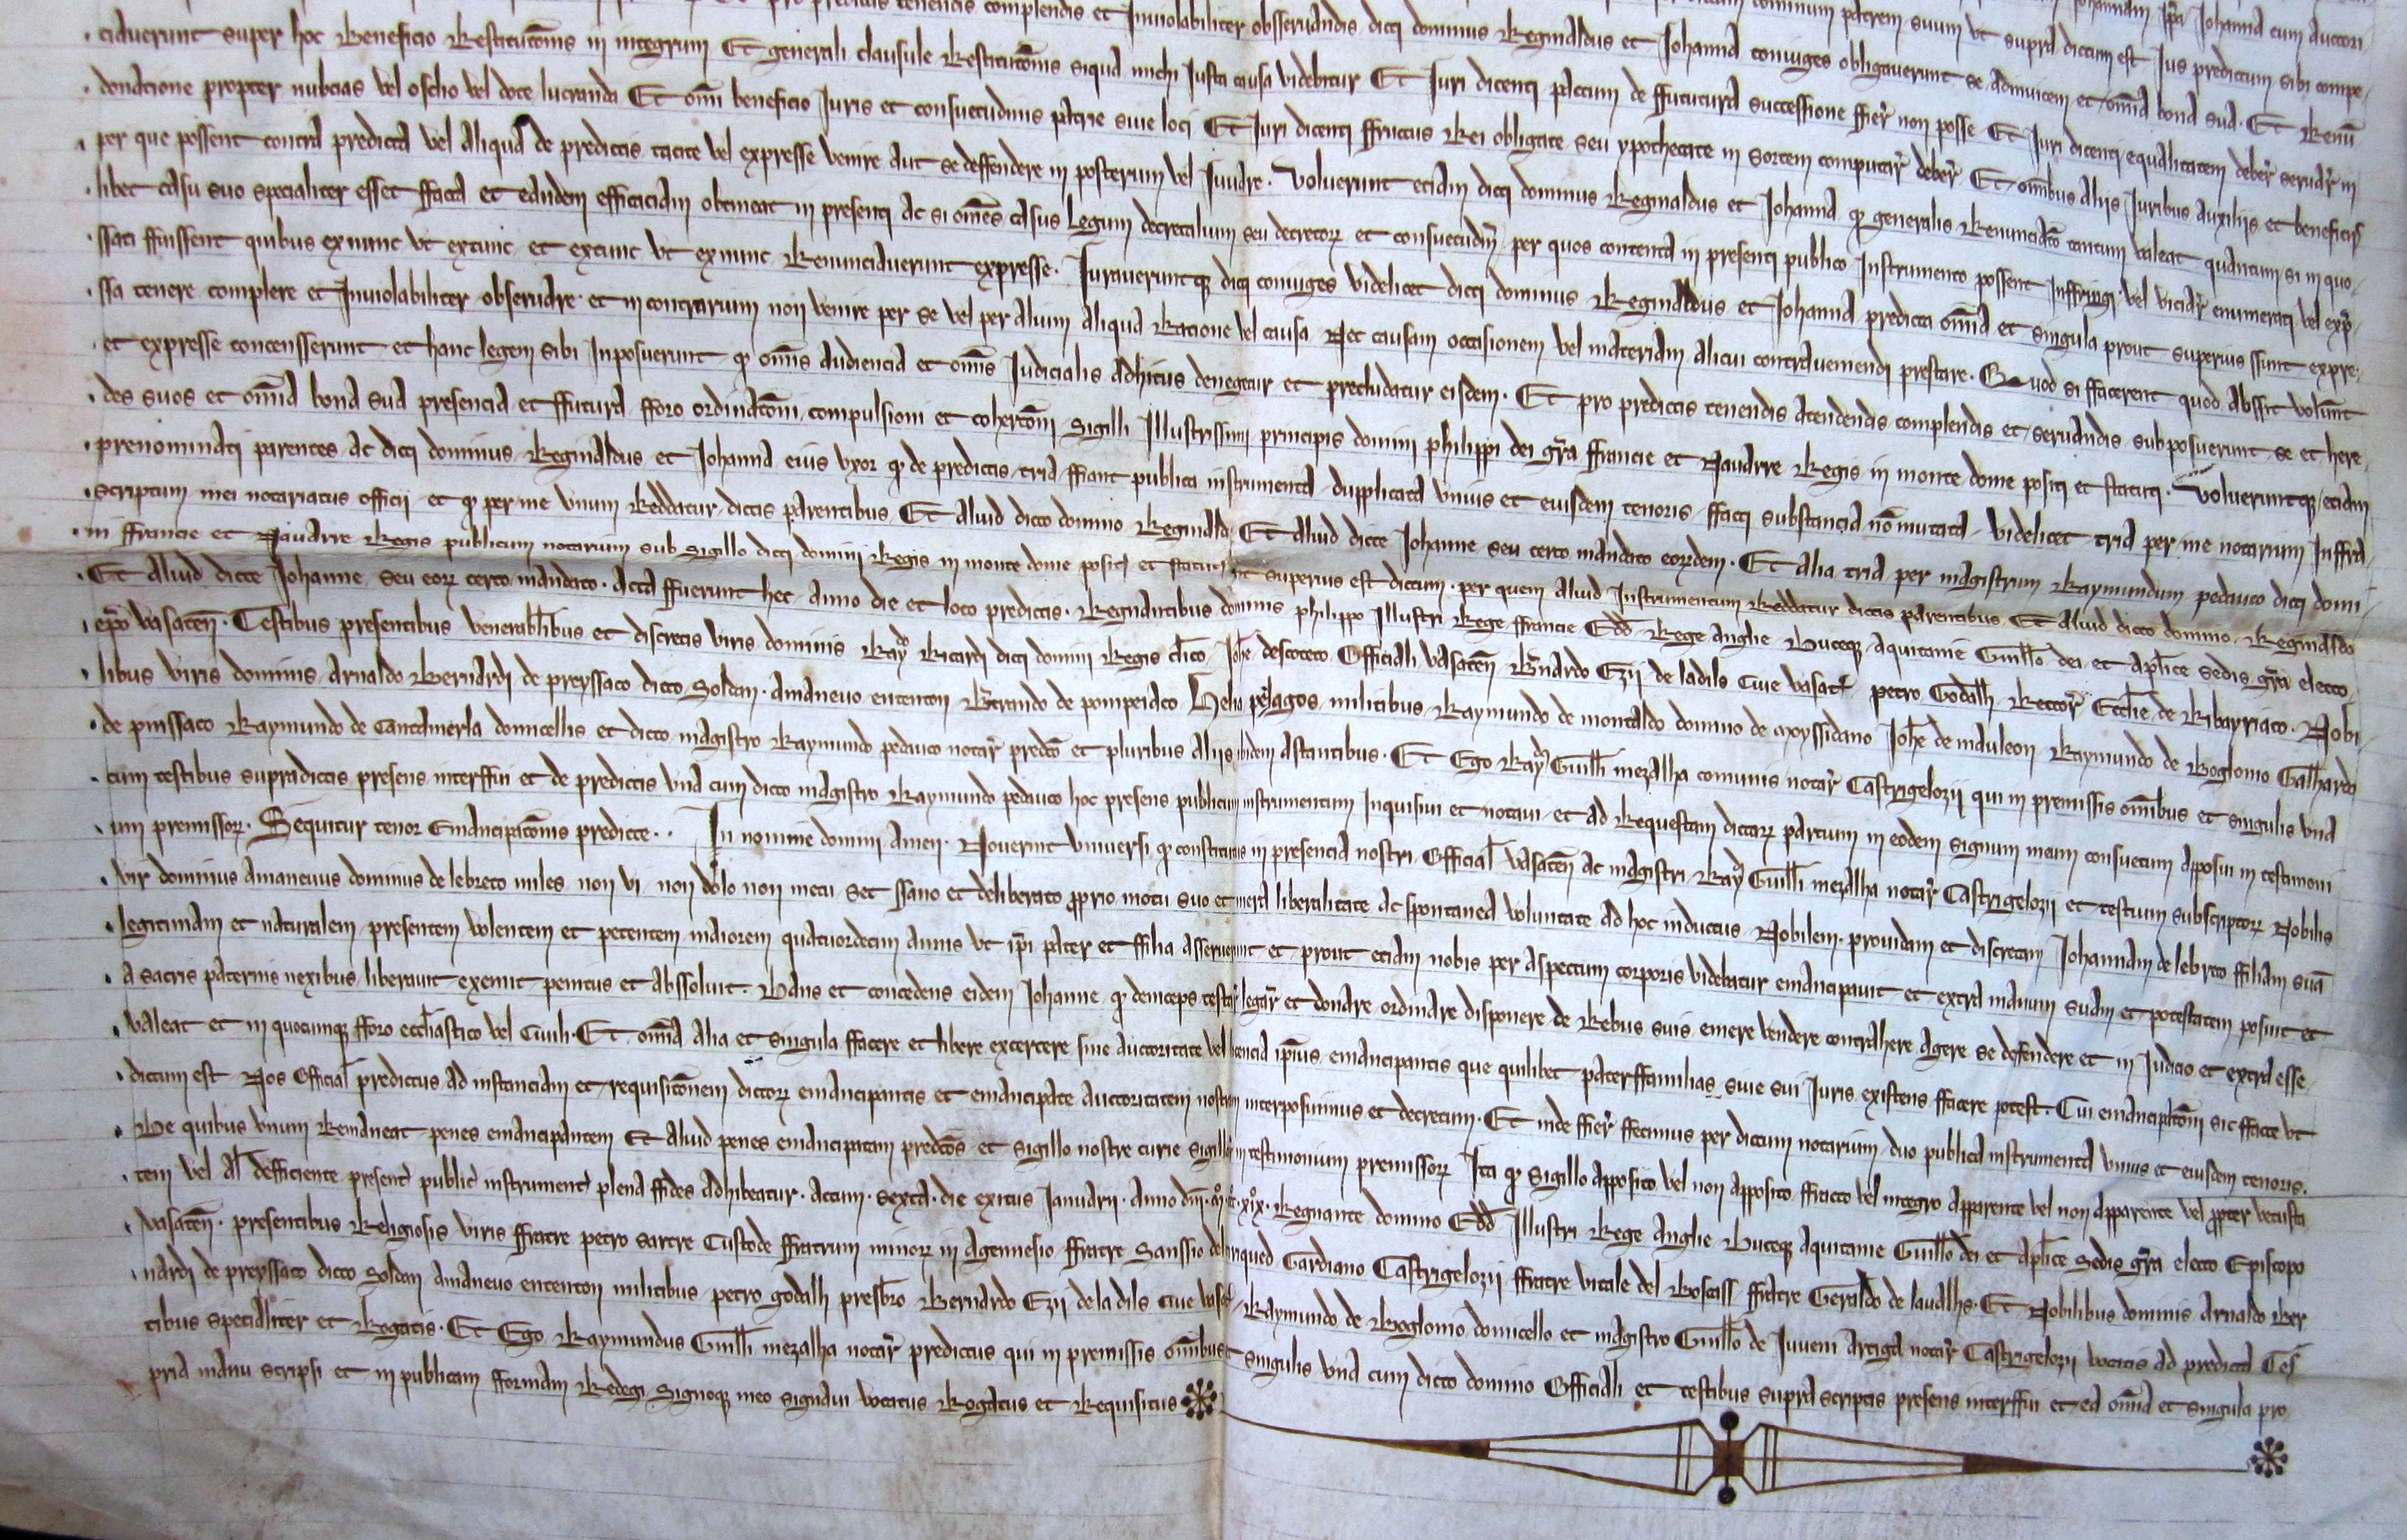 pro predictis tenendis complendis et Inviolabiliter obsseruandis dicti dominus Reginaldus et Johanna coniuges obligauerunt se adinuicem et om̄ia bona sua · Et Renū
ciauerunt super hoc Beneficio Restitutōnis in integrum Et generali clausule Restitutōnis siqua michi Justa causa videbitur Et Juri dicenti pactum de ffuctura successione ffier̄ non posse Et Juri dicenti equalitatem deber̄ seruar̄ in
donacione propter nubcias vel osclio vel dote lucranda Et om̄i beneficio Juris et consuetudinis patrie siue loci Et Juri dicenti ffructus Rei obligate seu ypothecate in sortem computar̄ deber̄ Et om̄ibus aliis Juribus auxiliis et beneficiis
per que possent contra predicta vel aliqua de predictis tacite vel expresse venire aut se deffendere in posterum vel Juuare · Voluerunt etiam dicti dominus Reginaldus et Johanna ꝙ generalis Renunciatō tantum valeat quantum si in quo
libet casu suo specialiter esset ffacta et eandem efficaciam obtineat in presenti ac si om̄es casus legum decretalium seu decretoꝝ et consuetudin̄ per quos contenta in presenti publico Instrumento possent Inffringi vel viciar̄ enumerati vel exp̄
ssati ffuissent quibus exnunc vt extunc et extunc vt exnunc Renunciauerunt expresse · Juraueruntqꝫ dicti coniuges videlicet dicti dominus Reginaldus et Johanna predicta om̄ia et singula prout superius ssunt expre
ssa tenere complere et Inuiolabiliter obseruare et in contrarium non venire per se vel per alium aliqua Racione vel causa Nec causam occasionem vel materiam alicui contraueniendi prestare · Quod si ffacerent quod abssit volūnt
et expresse concensserunt et hanc legem sibi Inposuerunt ꝙ om̄is audiencia et om̄is Judicialis adhitus denegetur et precludatur eisdem · Et pro predictis tenendis atendendis complendis et seruandis subposuerunt se et here
des suos et om̄ia bona sua presencia et ffutura fforo ordinatōni compulsioni et cohertōni sigilli Illustrissimi principis domini philippi dei gr̄a ffrancie et Nauarre Regis in monte dome positi et statuti · Volueruntqꝫ etiam
prenominati parentes ac dicti dominus Reginaldus et Johanna eius vxor ꝙ de predictis tria ffiant publica instrumenta dupplicata vnius et eiusdem tenoris ffacti substancia nō mutata videlicet tria per me notarium Inffra
scriptum mei notariatus officii et ꝙ per me vnum Reddatur dictis parentibus Et aliud dicto domino Reginaldo Et aliud dicte Johanne seu certo mandato eoꝝdem · Et alia tria per magistrum Raymundum pedauco dicti domi
ni ffrancie et Nauarre Regis publicum notarium sub sigillo dicti domini Regis in monte dome positi et statuti vt superius est dictum · per quem aliud Instrumentum Reddatur dictis parentibus Et aliud dicto domino Reginaldo
Et aliud dicte Johanne seu eoꝝ certo mandato · Acta ffuerunt hec anno die et loco predictis · Regnantibus dominis philippo Illustri Rege ffrancie Edd̄ Rege Anglie Duceqꝫ Aquitanie Guill̄o dei et apl̄ice sedis gr̄a electo
ep̄o vasaten̄ · Testibus presentibus venerabilibus et discretis viris dominis Rayd̄o Ricardi dicti domini Regis cl̄ico Joh̄e descoceto Officiali Vasaten̄ Bn̄ardo Ezii de ladils ciue vasat̄ petro Godalh Rector̄ Eccl̄ie de Ribayriaco · Nobi
libus viris dominis Arnaldo Bernardi de preyssaco dicto Soldan · Amaneuo ententon Bt̄rando de pompeiaco Helia militibus Raymundo de montaldo domino de moyssidano Joh̄e de mauleon Raymundo de Boglonio Galhardo
de pinssaco Raymundo de Cantamerla domicellis et dicto magistro Raymundo pedauco notar̄ predc̄o et pluribus aliis ibidem astantibus · Et Ego Rayd̄ Guill̄i mezalha comunis notar̄ Castrigelozii qui in premissis om̄ibus et singulis vna
cum testibus supradictis presens interffui et de predictis vna cum dicto magistro Raymundo pedauco hoc presens publicum instrumentum Inquisiui et notaui et ad Requestam dictaꝝ partium in eodem signum meum consuetum apposui in testimoni
um premissoꝝ · Sequitur tenor Emancipatōnis predicte · · In nomine domini amen · Nouerint vniuersi ꝙ constitutus in presencia nostri Official̄ Vasaten̄ ac magistri Rayd̄ Guill̄i mezalha notar̄ Castrigelozii et testium subscriptoꝝ Nobilis
vir dominus Amaneuus dominus de lebreto miles non vi non dolo non metu set ssano et deliberato proprio motu suo et mera liberalitate ac spontanea voluntate ad hoc inductus Nobilem prouidam et discretam Johannam de lebreto ffiliam suā
legitimam et naturalem presentem volentem et petentem maiorem quatuordecim annis vt ip̄i pater et ffilia asseruerunt et prout etiam nobis per aspectum corporis videbatur emancipauit et extra manum suam et potestatem posuit et
a sacris paternis nexibus liberauit exemit penitus et abssoluit · Dans et concedens eidem Johanne ꝙ deinceps testar̄ legar̄ et donare ordinare disponere de Rebus suis emere vendere contrahere agere se defendere et in Judicio et extra esse
valeat et in quocumqꝫ fforo eccl̄iastico vel Ciuili · Et om̄ia alia et singula ffacere et libere excercere sine auctoritate vel licencia ip̄ius emancipantis que quilibet paterffamilias siue sui Juris existens ffacere potest · Cui emancipatōni sic ffacte vt
dictum est Nos Official̄ predictus ad instanciam et requisitōnem dictoꝝ emancipantis et emancipate auctoritatem nostram interposuimus et decretum · Et inde ffier̄ ffecimus per dictum notarium duo publica instrumenta vnius et eiusdem tenoris ·
De quibus vnum Remaneat penes emancipantem Et aliud penes emancipatam predc̄os et sigillo nostre curie sigillar̄ in testimonium premissoꝝ Ita ꝙ sigillo apposito vel non apposito ffracto vel integro apparente vel non apparente vel propter vetusta
tem vel al̄ defficiente present̄ public̄ instrument̄ plena ffides adhibeatur · Actum · sexta · die exitus Januarii · anno dn̄i · mº · cccº · xºixº · Regnante domino Edd̄ Illustri Rege Anglie Duceqꝫ Aquitanie Guill̄o dei et apl̄ice sedis gr̄a electo Episcopo
vasaten̄ · presentibus Religiosis viris ffratre petro sartre Custode ffratrum minoꝝ in Agennesio ffratre Sanssio Gardiano Castrigelozii ffratre vitale del Boscass ffratre Geraldo de laualhs · Et Nobilibus dominis Arnaldo Ber
nardi de preyssaco dicto Soldan Amaneuo ententon militibus petro godalh presbr̄o Bernardo Ezii de ladils ciue vasat̄ Raymundo de Boglonio domicello et magistro Guill̄o de Juueni Artiga notar̄ Castrigelozii vocatis ad predicta Tes
tibus specialiter et Rogatis · Et Ego Raymundus Guill̄i mezalha notar̄ predictus qui in premissis om̄ibus et singulis vna cum dicto domino Officiali et testibus supra scriptis presens interffui et ea om̄ia et singula pro
pria manu scripsi et in publicam fformam Redegi Signoqꝫ meo signaui vocatus Rogatus et Requisitus